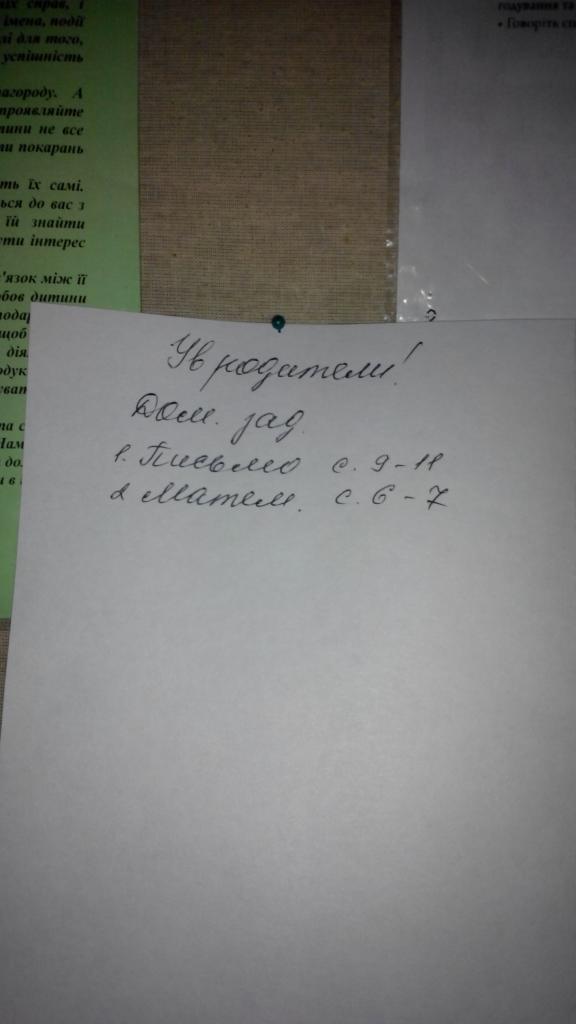 них справ, і
імена, події
лі для того,
успішність
нагороду. А
проявляйте
тини не все
ти покарань
ть їх самі.
ься до вас з
їй знайти
ути інтерес
в'язок між її
юбов дитини
щоб
годування та
• Говоріть сп
Ув родители!
Дом. зад.
1. Письмо с. 9-11
2 Матем. с. 6-7